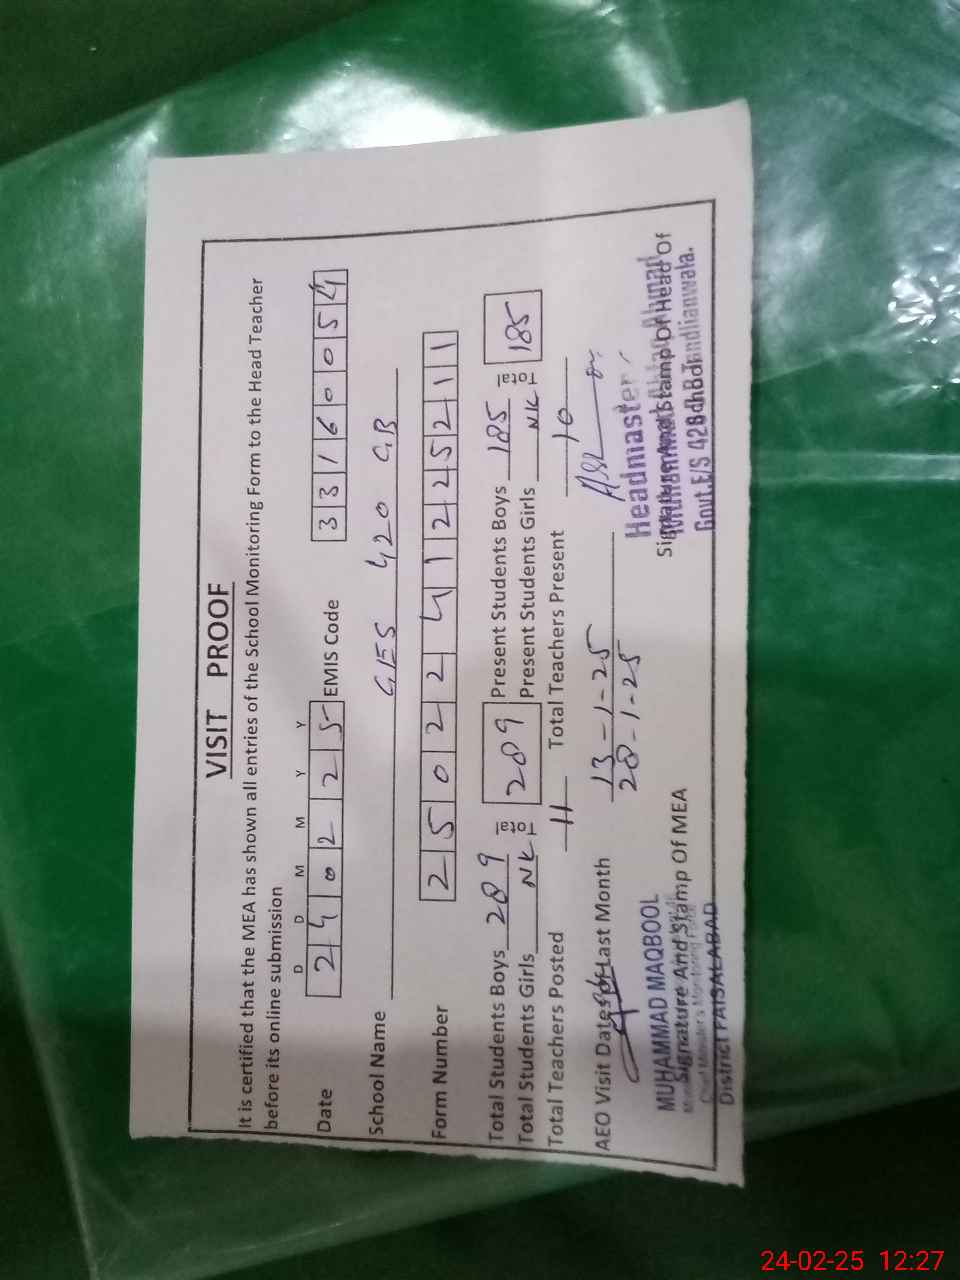 VISIT PROOF
It is certified that the MEA has shown all entries of the School Monitoring Form to the Head Teacher
before its online submission
D D M M Y Y
Date 2 4 0 2 2 5 EMIS Code 3 3 1 6 0 0 5 4
School Name GES 420 GB
Form Number 2 5 0 2 2 4 1 2 2 5 2 1 1
Total Students Boys 289 Total 289 Present Students Boys 185 Total 185
Total Students Girls NK Present Students Girls NK
Total Teachers Posted 11 Total Teachers Present 10
AEO Visit Dates of Last Month 13-1-25
28-1-25
MUHAMMAD MAQBOOL
Signature And Stamp Of MEA
District FAISALABAD
Headmaster
Signature And Stamp Of Head Of
Govt.E/S 420
24-02-25 12:27